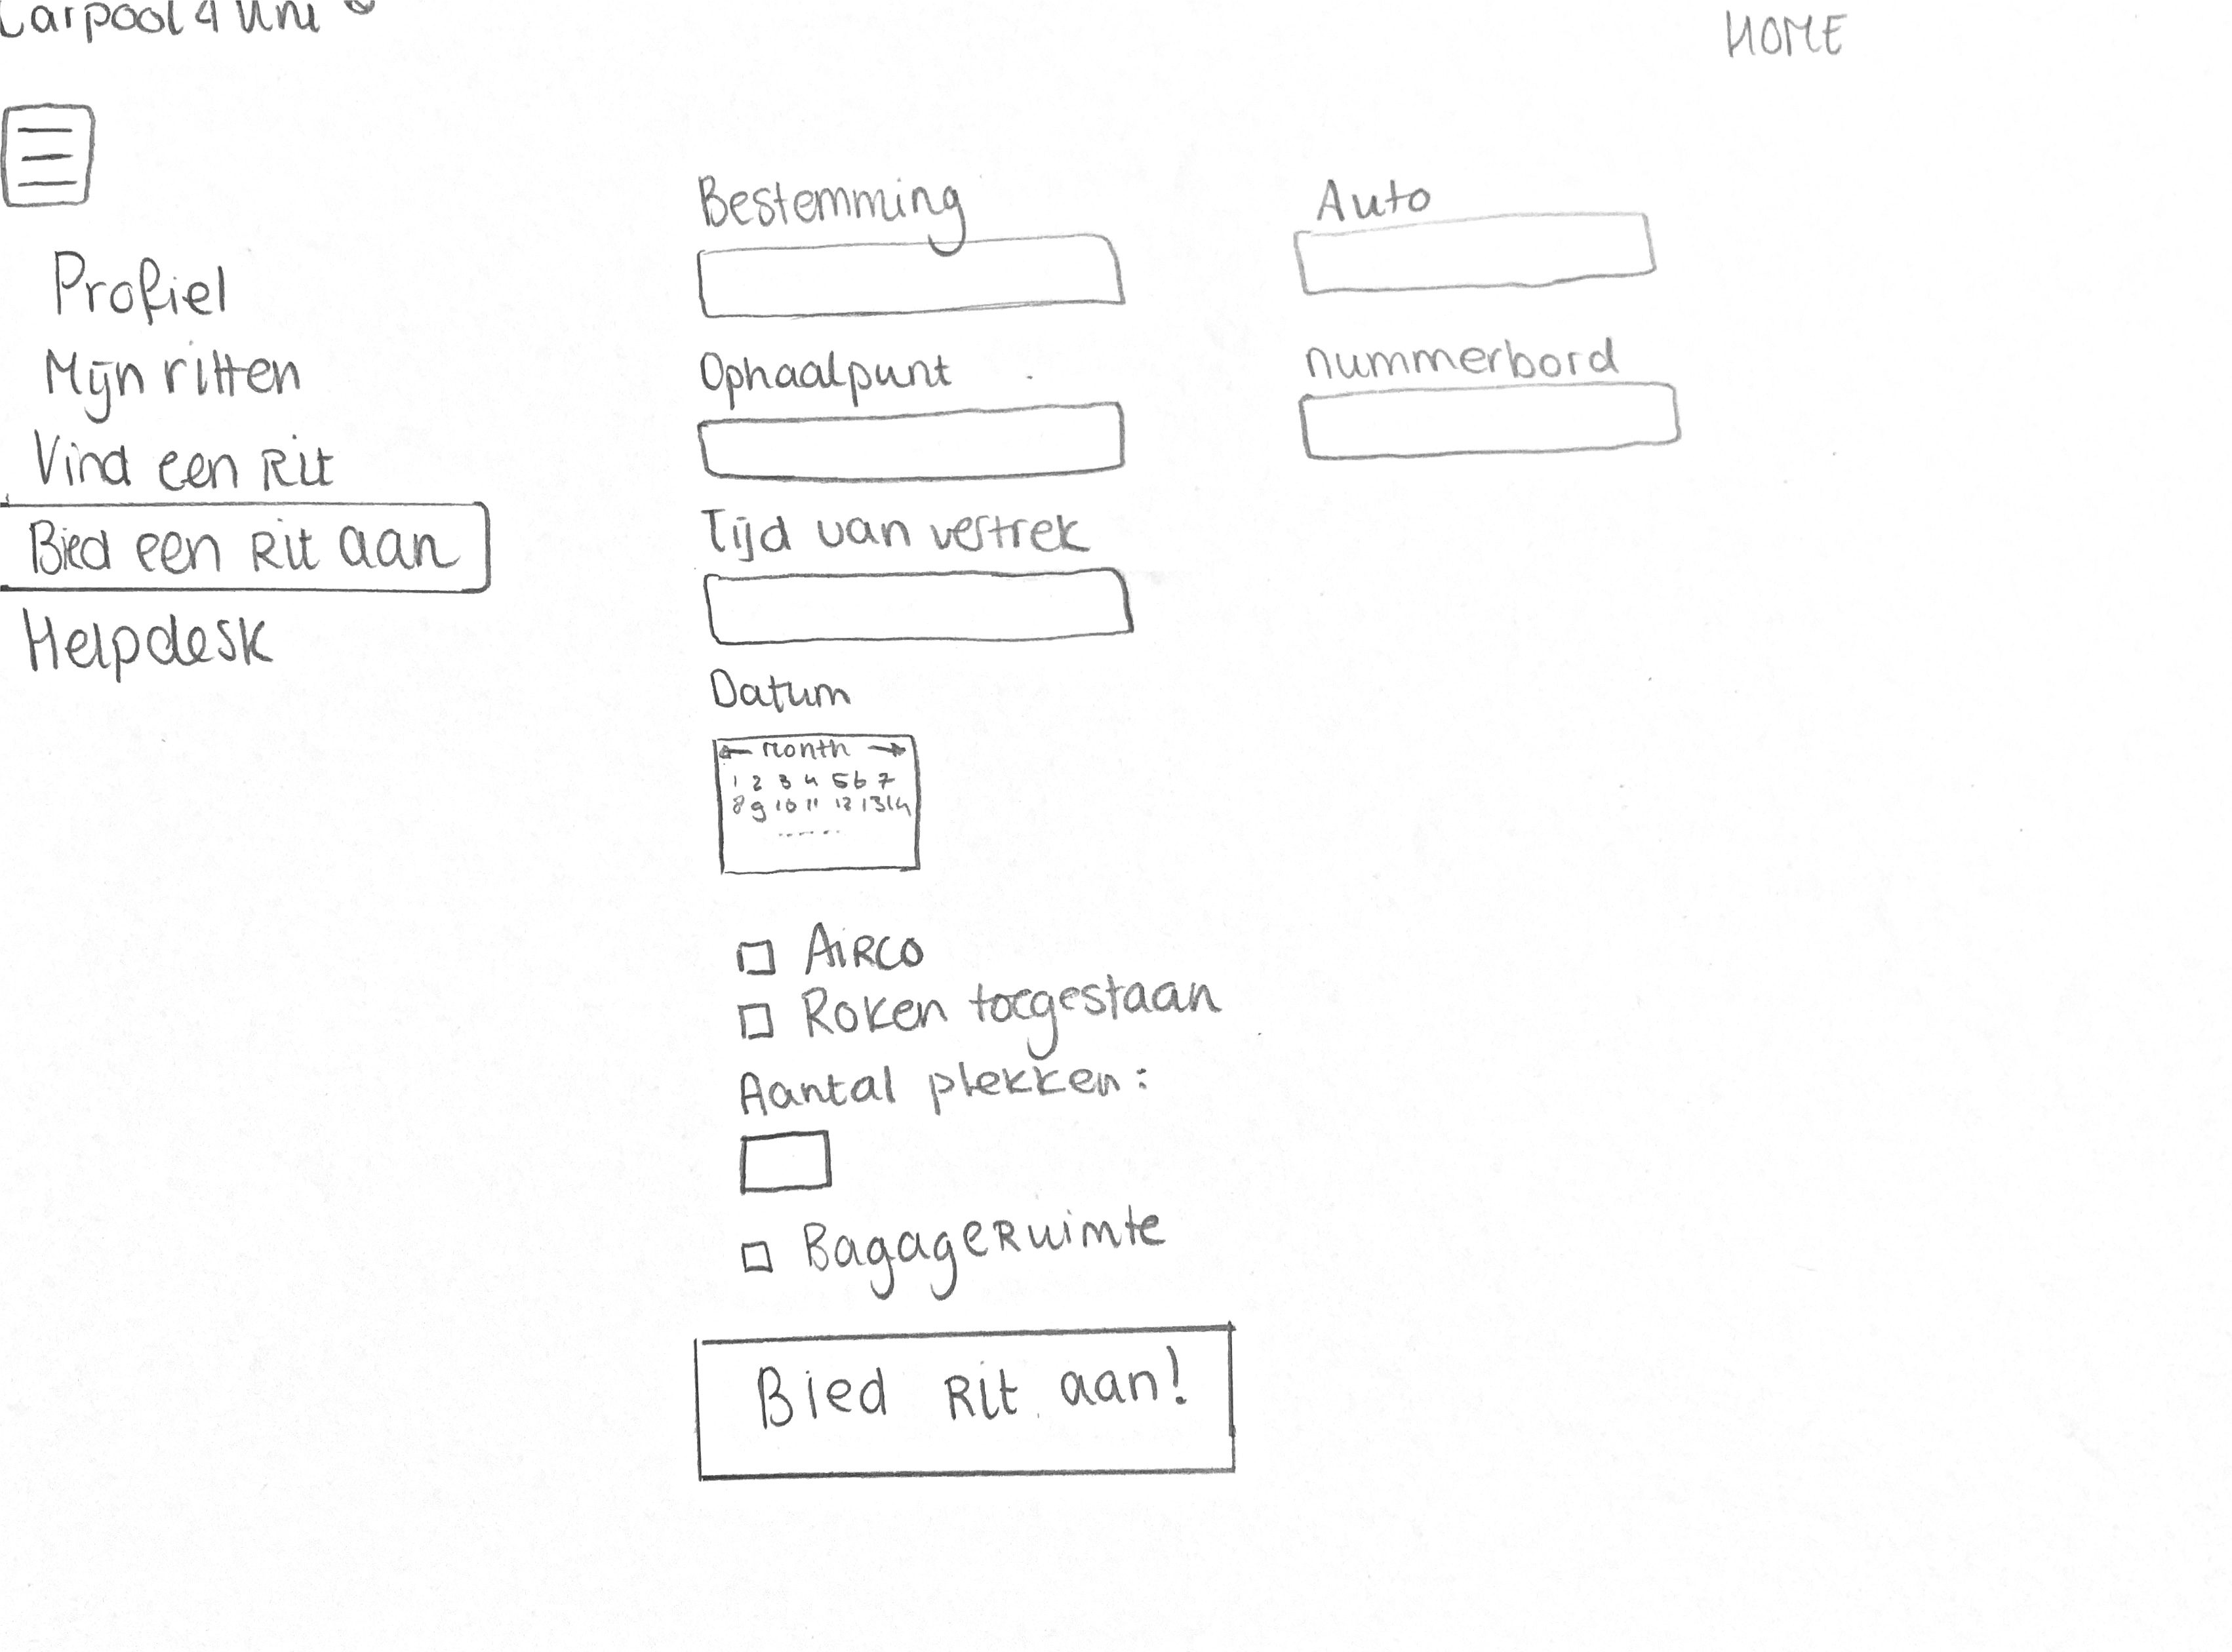 Carpool4Uni
HOME
Profiel
Mijn ritten
Vind een Rit
Bied een Rit aan
Helpdesk
Bestemming
Auto
Ophaalpunt
nummerbord
Tijd van vertrek
Datum
← Month →
1 2 3 4 5 6 7
8 9 10 11 12 13 14
......
AIRCO
Roken toegestaan
Aantal plekken:
Bagageruimte
Bied Rit aan!